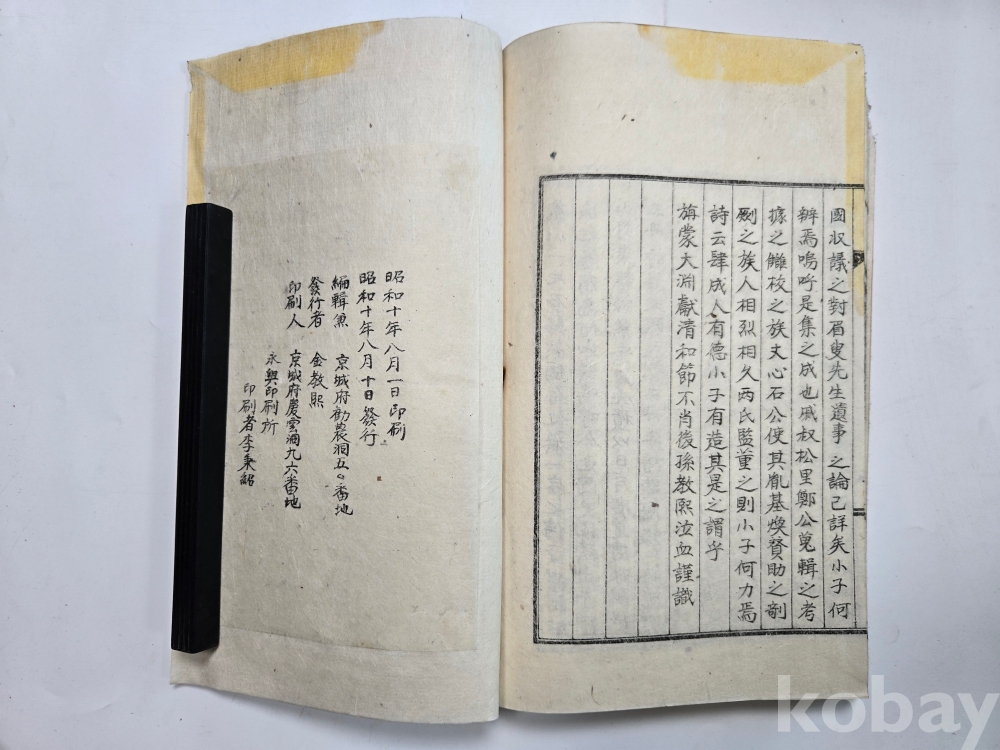 國収議之對眉叟先生遺事之論已詳矣小子何
辨焉嗚呼是集之成也戚叔松里鄭公蒐輯之考
據之讎校之族丈心石公使其胤基煥賛助之剞
劂之族人相烈相久两氏監董之則小子何力焉
詩云肆成人有德小子有造其是之謂乎
旃蒙大淵獻清和節不肖後孫教熙泣血謹識
昭和十年八月一日印刷
昭和十年八月十日發行
編輯兼 京城府勸農洞五〃番地
發行者 金教熙
印刷人 京城府慶雲洞九六番地
永興印刷所
印刷者李秉
kobay